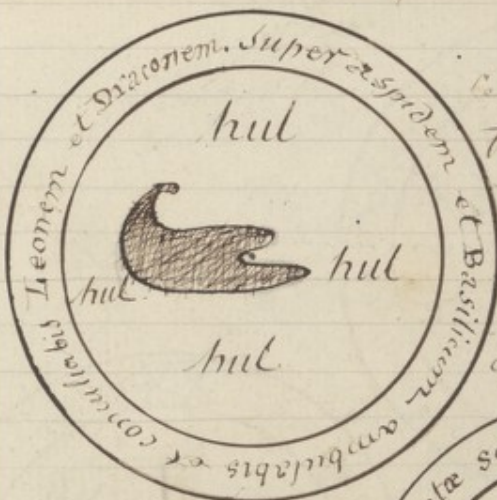 Super aspidem et Basilicum ambulabis et conculcabis Leonem et Draconem.
hul
hul
hul
hul